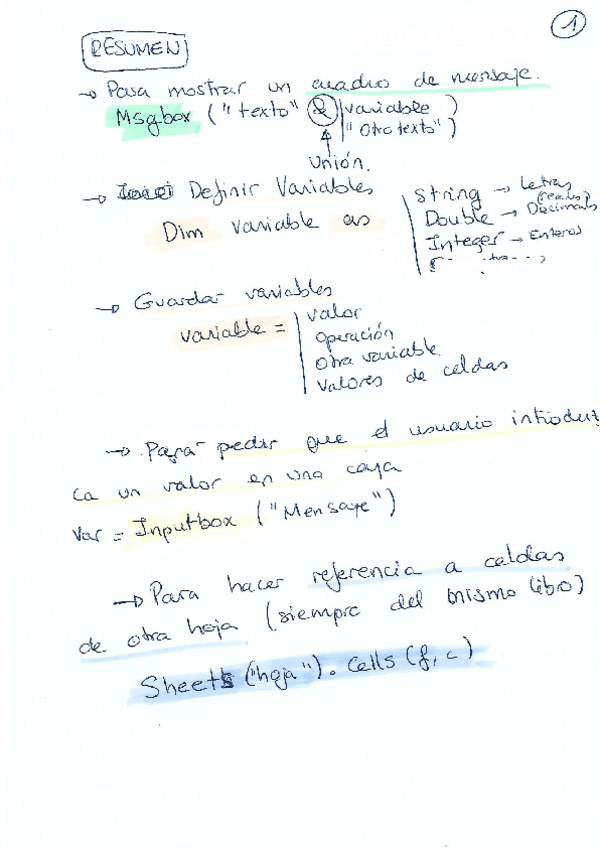 1
RESUMEN
→ Para mostrar un cuadro de mensaje.
Msgbox ("texto" & | variable )
"Otro texto")
Unión.
→ Definir Variables
Dim variable as
String → Letras
Double → (reales) Decimales
Integer → Enteros
→ Guardar variables
variable = | valor
operación
otra variable
valores de celdas
→ Para pedir que el usuario introduz
ca un valor en una caja
Var = Inputbox ("Mensaje")
→ Para hacer referencia a celdas
de otra hoja (siempre del mismo libro)
Sheets ("hoja"). Cells (f, c)